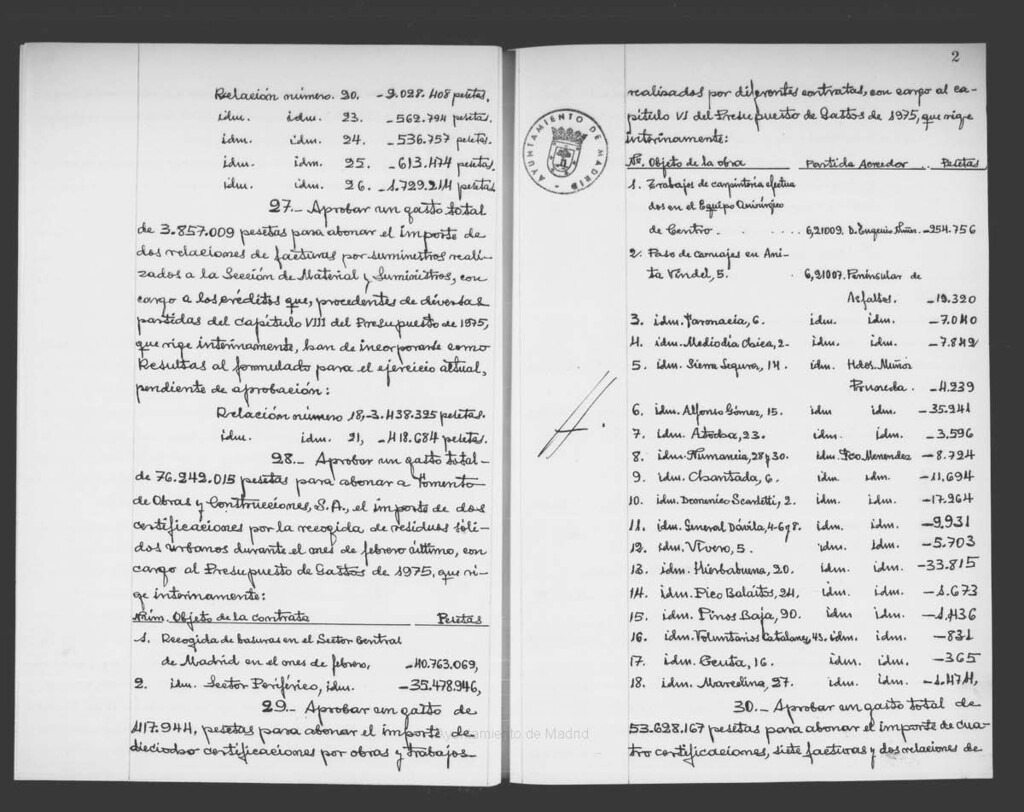 Relación número. 20. -2.028.408 pesetas.
idm. idm. 23. -562.794 pesetas.
idm. idm. 24. -536.757 pesetas.
idm. idm. 25. -613.474 pesetas.
idm. idm. 26. -1.729.214 pesetas
27.- Aprobar un gasto total
de 3.857.009 pesetas para abonar el importe de
dos relaciones de facturas por suministros reali-
zados a la Sección de Material y Suministros, con
cargo a los créditos que, procedentes de diversas
partidas del Capítulo VIII del Presupuesto de 1975,
que rige interinamente, han de incorporarse como
Resultas al formulado para el ejercicio actual,
pendiente de aprobación:
Relación número 18,-3.438.325 pesetas.
idm. idm. 21, -418.684 pesetas.
28.- Aprobar un gasto total-
de 76.242.015 pesetas para abonar a Fomento
de Obras y Construcciones, S.A., el importe de dos
certificaciones por la recogida de residuos sóli-
dos urbanos durante el mes de febrero último, con
cargo al Presupuesto de Gastos de 1975, que ri-
ge interinamente:
Núm. Objeto de la Contrata Pesetas
1. Recogida de basuras en el Sector Central
de Madrid en el mes de febrero, -40.763.069,
2. idm. Sector Periférico, idm. -35.478.946,
29.- Aprobar un gasto de
417.944, pesetas para abonar el importe de
dieciocho certificaciones por obras y trabajos-
2
realizados por diferentes contratas, con cargo al ca-
pítulo VI del Presupuesto de Gastos de 1975, que rige
interinamente:
AYUNTAMIENTO DE MADRID
Nº. Objeto de la obra Partida Acreedor .. Pesetas
1. Trabajos de carpintería efectua
dos en el Equipo Quirúrgico
de Centro. 6,21009. D. Eugenio Núñez.-254.756
2. Paso de carruajes en Ani-
ta Vindel, 5. 6,21007. Peninsular de
Asfaltos. -19.320
3. idm. 6. idm. idm. -7.040
4. idm. Mediodía Chica, 2- idm. idm. -7.842
5. idm. Sierra Segura, 14. idm. Hdos. Muñoz
Pruneda. -4.239
6. idm. Alfonso Gómez, 15. idm idm. -35.241
7. idm. Atocha, 23. idm. idm. -3.596
8. idm. Numancia, 28 y 30. idm. Fco Menendez -8.724
9. idm. Chantada, 6. idm. idm. -11.694
10. idm. Domenico Scarlatti, 2. idm. idm. -17.264
11. idm. General Dávila, 4-6 y 8. idm. idm. -9.931
12. idm. Vivero, 5. idm. idm. -5.703
13. idm. Hierbabuena, 20. idm idm. -33.815
14. idm. Pico Balaitos, 24. idm. idm. -1.673
15. idm. Pinos Baja, 90. idm idm. -1.436
16. idm. Voluntarios Catalanes, 43. idm. idm. -831
17. idm. Ceuta, 16. idm. idm. -365
18. idm. Marcelina, 27. idm. idm. -1.474,
30.- Aprobar un gasto total de
53.628.167 pesetas para abonar el importe de cua-
tro certificaciones, siete facturas y dos relaciones de
Ayuntamiento de Madrid